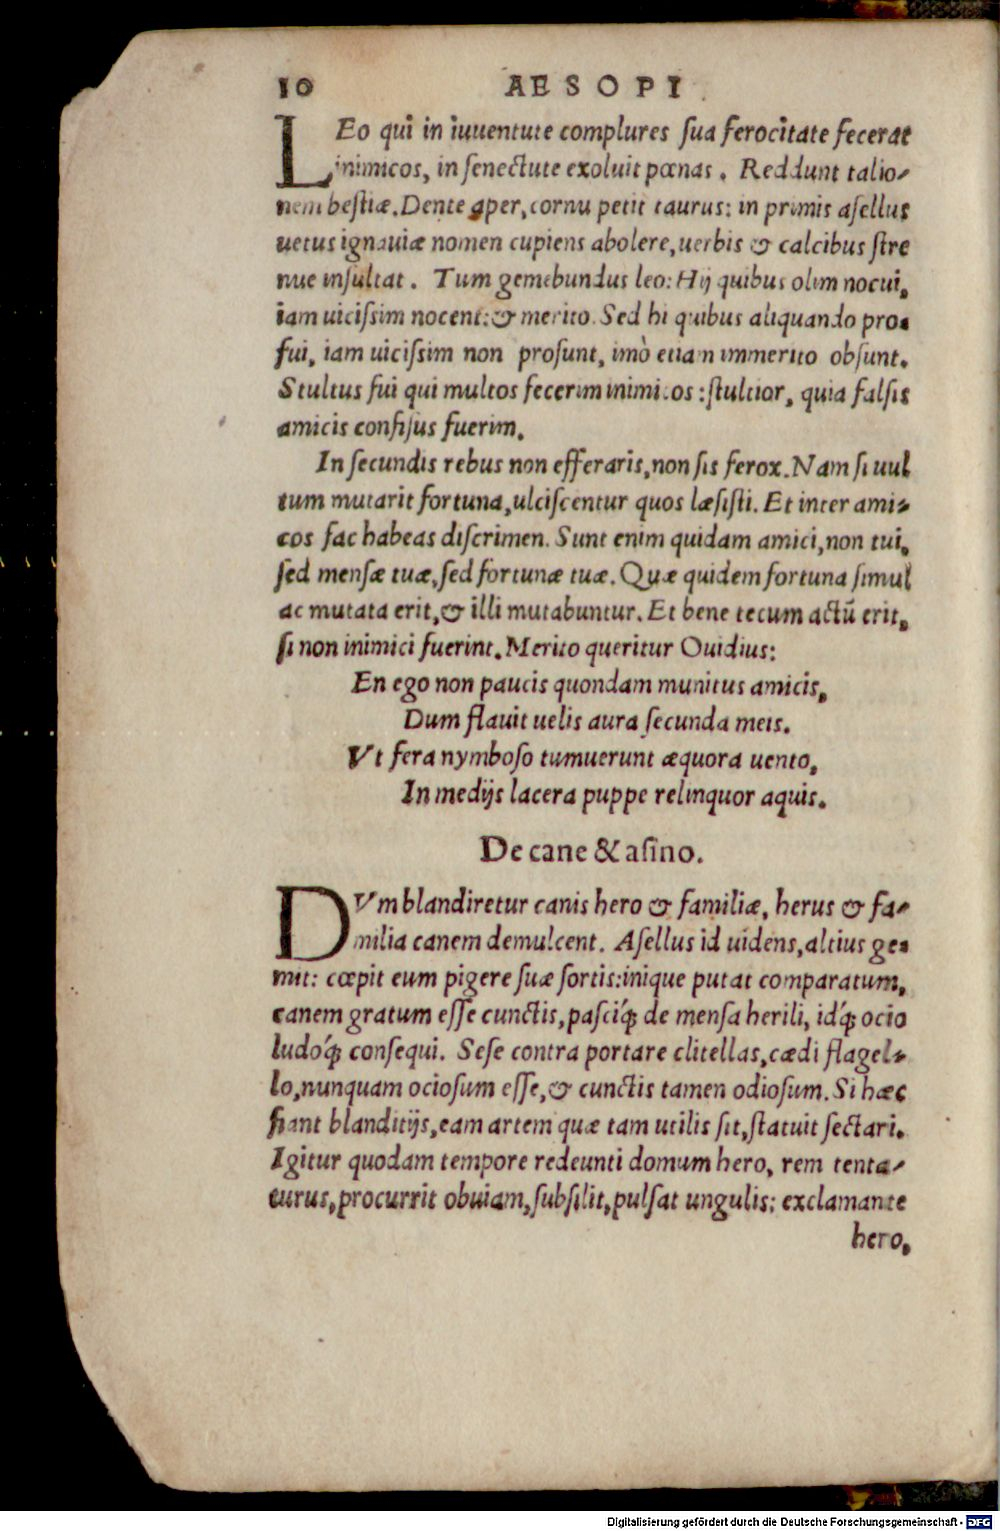 10 AESOPI
LEo qui in iuuentute complures ſua ferocitate fecerat
inimicos, in ſenectute exoluit pœnas. Reddunt talio-
nem beſtiæ. Dente aper, cornu petit taurus: in primis aſellus
uetus ignauiæ nomen cupiens abolere, uerbis & calcibus ſtre
nue inſultat. Tum gemebundus leo: Hij quibus olim nocui,
iam uiciſsim nocent: & merito. Sed hi quibus aliquando pro-
fui, iam uiciſsim non proſunt, imò etiam immerito obſunt.
Stultus fui qui multos fecerim inimicos: ſtultior, quia falſis
amicis confiſus fuerim.
In ſecundis rebus non efferaris, non ſis ferox. Nam ſi uul
tum mutarit fortuna, ulciſcentur quos læſiſti. Et inter ami-
cos fac habeas diſcrimen. Sunt enim quidam amici, non tui,
ſed menſæ tuæ, ſed fortunæ tuæ. Quæ quidem fortuna ſimul
ac mutata erit, & illi mutabuntur. Et bene tecum actũ erit,
ſi non inimici fuerint. Merito queritur Ouidius:
En ego non paucis quondam munitus amicis,
Dum flauit uelis aura ſecunda meis.
Vt fera nymboſo tumuerunt æquora uento,
In medijs lacera puppe relinquor aquis.
De cane & aſino.
DVm blandiretur canis hero & familiæ, herus & fa-
milia canem demulcent. Aſellus id uidens, altius ge-
mit: cœpit eum pigere ſuæ ſortis: inique putat comparatum,
canem gratum eſſe cunctis, paſciq́; de menſa herili, idq́; ocio
ludoq́; conſequi. Seſe contra portare clitellas, cædi flagel-
lo, nunquam ocioſum eſſe, & cunctis tamen odioſum. Si hæc
fiant blanditijs, eam artem quæ tam utilis ſit, ſtatuit ſectari.
Igitur quodam tempore redeunti domum hero, rem tenta-
turus, procurrit obuiam, ſubſilit, pulſat ungulis: exclamante
hero,
Digitalisierung gefördert durch die Deutsche Forschungsgemeinschaft - DFG